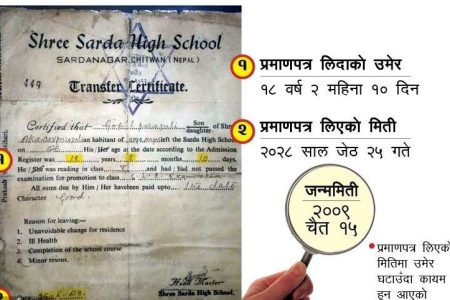 Shree Sarda High School
SARDANAGAR, CHITWAN (NEPAL)
449
Transfer Certificate.
Certified that Son
daughter. of
an habitant of left the Sarda High School
on His / Her age at the date according to the Admission
Register was 18 years 2 months 10 days,
He / She was reading in and had / had not passed the
examination for promotion to class
All sums due by Him / Her have been paid upto
Character Good.
Reason for leaving:-
1. Unavoidable change for residence
2. Ill Health
3. Completion of the school course
4. Minor resons.
Head Master
Shree Sarda High School,
Prakash
१
२
१ प्रमाणपत्र लिदाको उमेर
१८ वर्ष २ महिना १० दिन
२ प्रमाणपत्र लिएको मिती
२०२८ साल जेठ २५ गते
जन्ममिती
२००९
चैत १५
प्रमाणपत्र लिएको
मितिमा उमेर
घटाउँदा कायम
हुन आएको